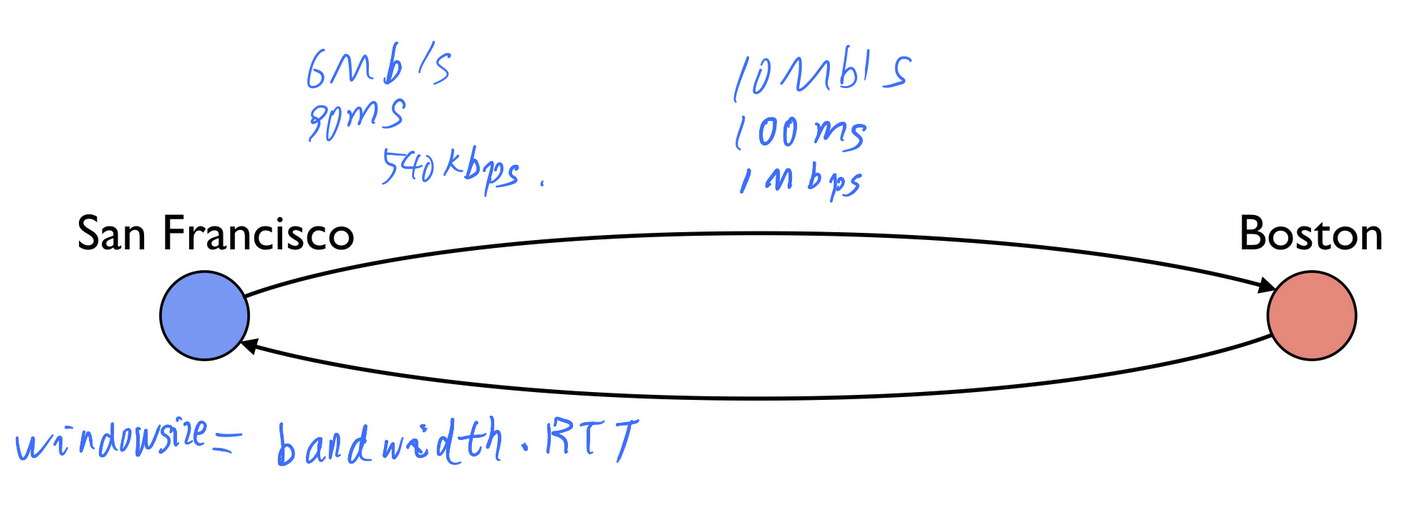 6Mb/s
90ms
540kbps.
10Mb/s
100ms
1Mbps
San Francisco
Boston
windowsize= bandwidth.RTT